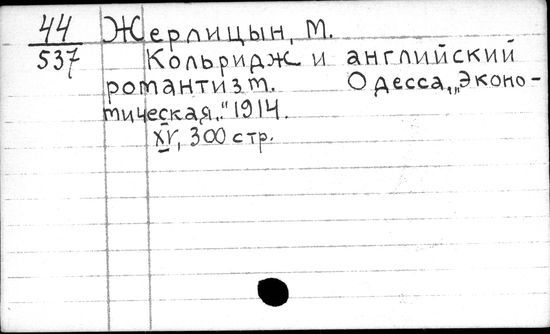 44 Жерлицын, М.
537 Кольридж и английский
романтизм. Одесса, „Эконо-
мическая." 1914.
XV, 300 стр.